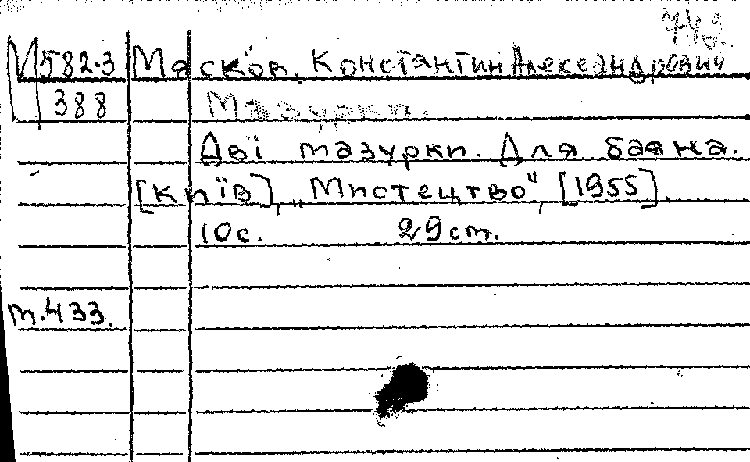 М582.3 Мясков, Константин Александрович
388 Мазурки.
Дві мазурки. Для баяна.
[Київ], „Мистецтво", [1955].
10с. 29 ст.
т.433.